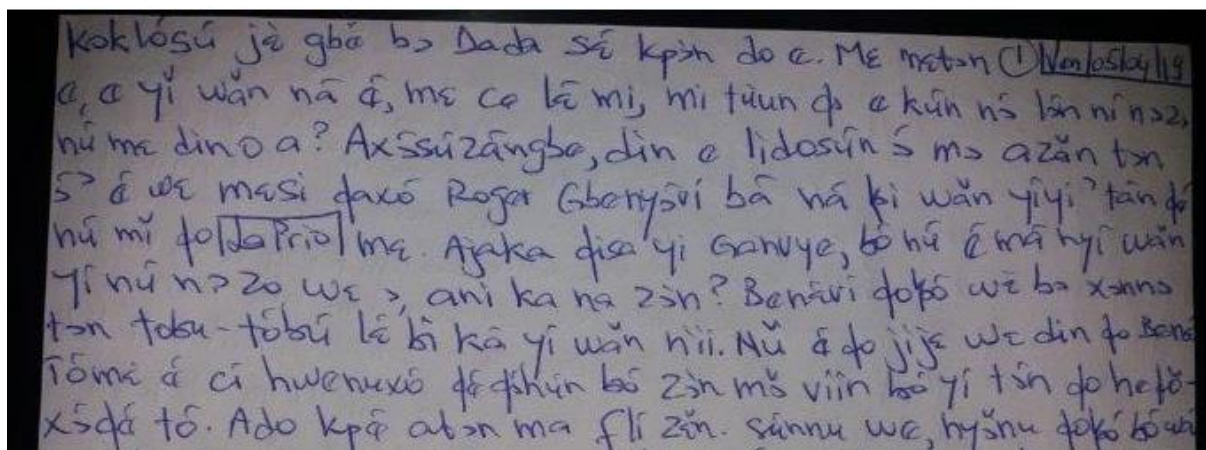 Koklósú jè gbě bɔ Dada sɛ́ kpɔ̀n do e. Mɛ mɛtɔn ①
ɖ, ɖ yǐ wǎn nǎ ɖ́, mɛ ce lɛ̄ mi, mi tùun ɖɔ e kún nɔ́ lɔ̀n ní nɔzo
nú mɛ din o a? Axɔ́ssúzāngbe, din e lidosún ɔ́ mɔ azǎn tɔn
ɔ́? é wɛ mɛsi ɖaxó Roger Gbenyɔ̌ví bá ná kí wǎn yíyi tán ɖé
nú mǐ ɖo La Prio mɛ. Ajaka ɖisa yi Ganvye, bó nú é má nyí wǎn
yí nú nɔzo wɛ ɔ, ani ka na zɔ̀n? Benɛ̌ví ɖokpó wɛ̀ bɔ xɔ́nnɔ
tɔn tobu-tóbú lɛ́ bǐ ká yí wǎn níi. Nǔ é ɖo jijɛ wɛ din ɖo Benɛ̌
Tómɛ é cí hwenuxó ɖé ɖɔhún bó zɔ̀n mɔ̌ viín bó yí tɔ́n do
xɔ́ɖé tó. Ado kpɛ́ atɔn ma flí zěn. súnnu we, nyɔ̌nu ɖokpó